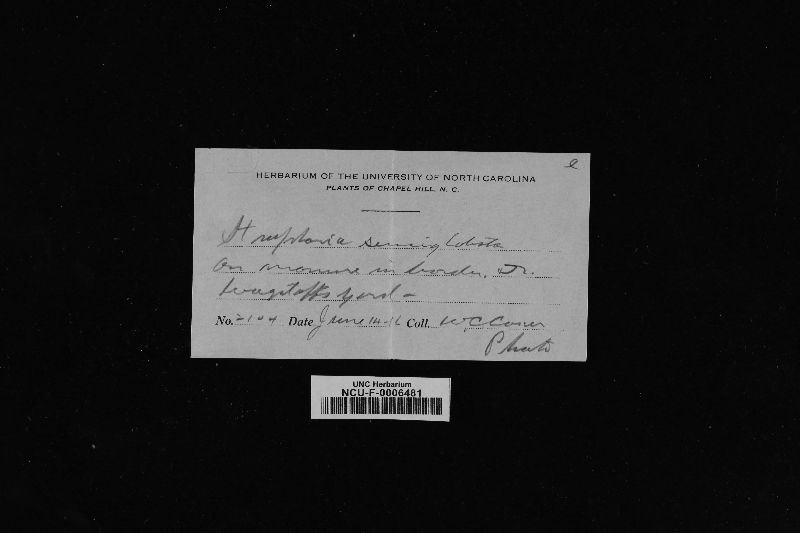 e
HERBARIUM OF THE UNIVERSITY OF NORTH CAROLINA
PLANTS OF CHAPEL HILL, N. C.
Stropharia semiglobata
On manure in border, Dr.
Wagstaff's yard -
No. 2104 Date June 14-16 Coll. WC Coker
Photo
UNC Herbarium
NCU-F-0006481